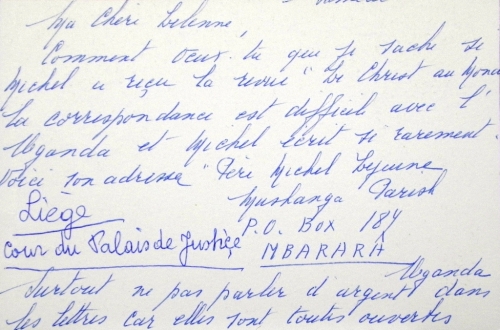 Ma Chère Hélène,
Comment veux-tu que je sache si
Michel a reçu la revue "Le Christ au Monde
La correspondance est difficile avec l'
Uganda et Michel écrit si rarement.
Voici son adresse "Père Michel Lejeune
Mushanga Parish
Liège
P.O. Box 184
Cour du Palais de Justice
MBARARA
Uganda
Surtout ne pas parler d'argent dans
les lettres car elles sont toutes ouvertes